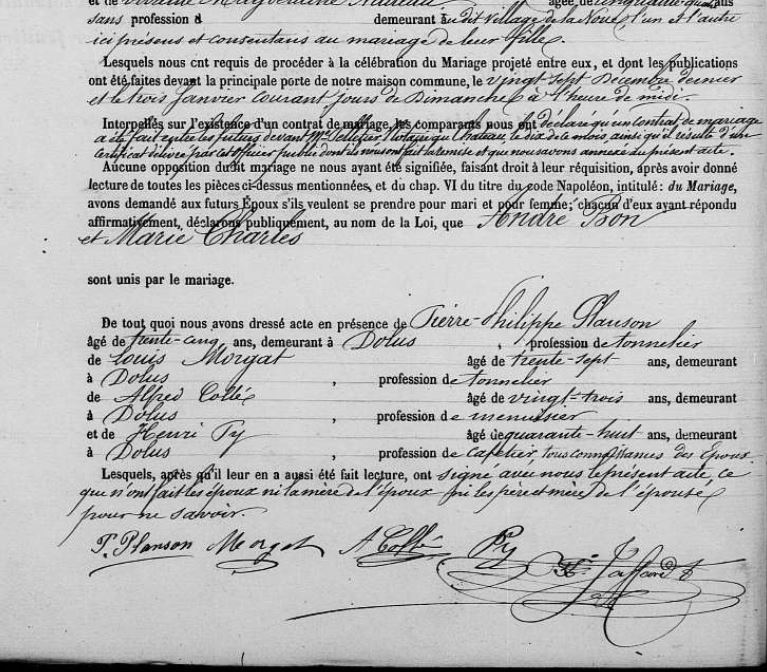 et de Magdeleine Nadeau âgée de cinquante-quatre ans
sans profession d demeurant au dit village de la Noue, l'un et l'autre
ici présens et consentans au mariage de leur fille.
Lesquels nous ont requis de procéder à la célébration du Mariage projeté entre eux, et dont les publications
ont été faites devant la principale porte de notre maison commune, le vingt sept Décembre dernier
et le trois Janvier courant jours de Dimanche à l'heure de midi.
Interpellés sur l'existence d'un contrat de mariage, les comparants nous ont déclaré qu'un contrat de mariage
a été fait entre les futurs devant Me notaire au Château, le dix de ce mois ainsi qu'il résulte d'un
certificat délivré par cet officier public dont ils nous ont fait la remise et que nous avons annexé au présent acte.
Aucune opposition audit mariage ne nous ayant été signifiée, faisant droit à leur réquisition, après avoir donné
lecture de toutes les pièces ci-dessus mentionnées, et du chap. VI du titre du code Napoléon, intitulé: du Mariage,
avons demandé aux futurs Époux s'ils veulent se prendre pour mari et pour femme; chacun d'eux ayant répondu
affirmativement, déclarons publiquement, au nom de la Loi, que André Bon
et Marie Charles
sont unis par le mariage.
De tout quoi nous avons dressé acte en présence de Pierre-Philippe Planson
âgé de trente-cinq ans, demeurant à Dolus , profession de tonnelier
de Louis Morgat âgé de trente-sept ans, demeurant
à Dolus , profession de tonnelier
de Alfred Collé âgé de vingt-trois ans, demeurant
à Dolus , profession de menuisier
et de Henri Py âgé de quarante-huit ans, demeurant
à Dolus , profession de cafetier, tous connaissances des époux
Lesquels, après qu'il leur en a aussi été fait lecture, ont signé avec nous le présent acte, ce
que n'ont fait les époux ni la mère de l'époux ni les père et mère de l'épouse
pour ne savoir.
P. Planson Morgat A Collé Py